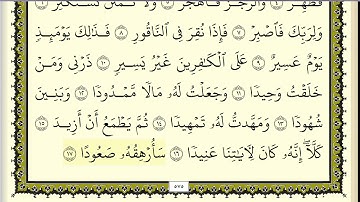 فَطَهِّرْ ٤ وَالرُّجْزَ فَاهْجُرْ ٥ وَلَا تَمْنُنْ تَسْتَكْثِرُ ٦
وَلِرَبِّكَ فَاصْبِرْ ٧ فَإِذَا نُقِرَ فِي النَّاقُورِ ٨ فَذَٰلِكَ يَوْمَئِذٍ
يَوْمٌ عَسِيرٌ ٩ عَلَى الْكَافِرِينَ غَيْرُ يَسِيرٍ ١٠ ذَرْنِي وَمَنْ
خَلَقْتُ وَحِيدًا ١١ وَجَعَلْتُ لَهُ مَالًا مَّمْدُودًا ١٢ وَبَنِينَ
شُهُودًا ١٣ وَمَهَّدتُّ لَهُ تَمْهِيدًا ١٤ ثُمَّ يَطْمَعُ أَنْ أَزِيدَ ١٥
كَلَّا إِنَّهُ كَانَ لِآيَاتِنَا عَنِيدًا ١٦ سَأُرْهِقُهُ صَعُودًا ١٧
٥٧٥